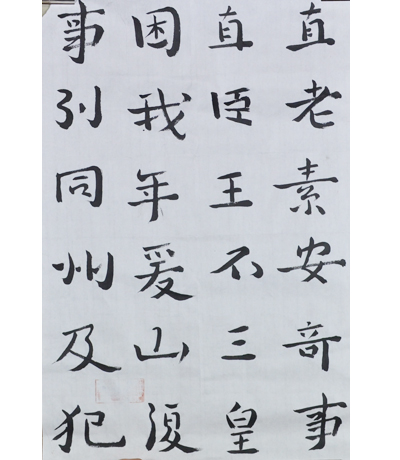 直老素安奇事
直臣王不三皇
困我年爰山復
事引同州及犯